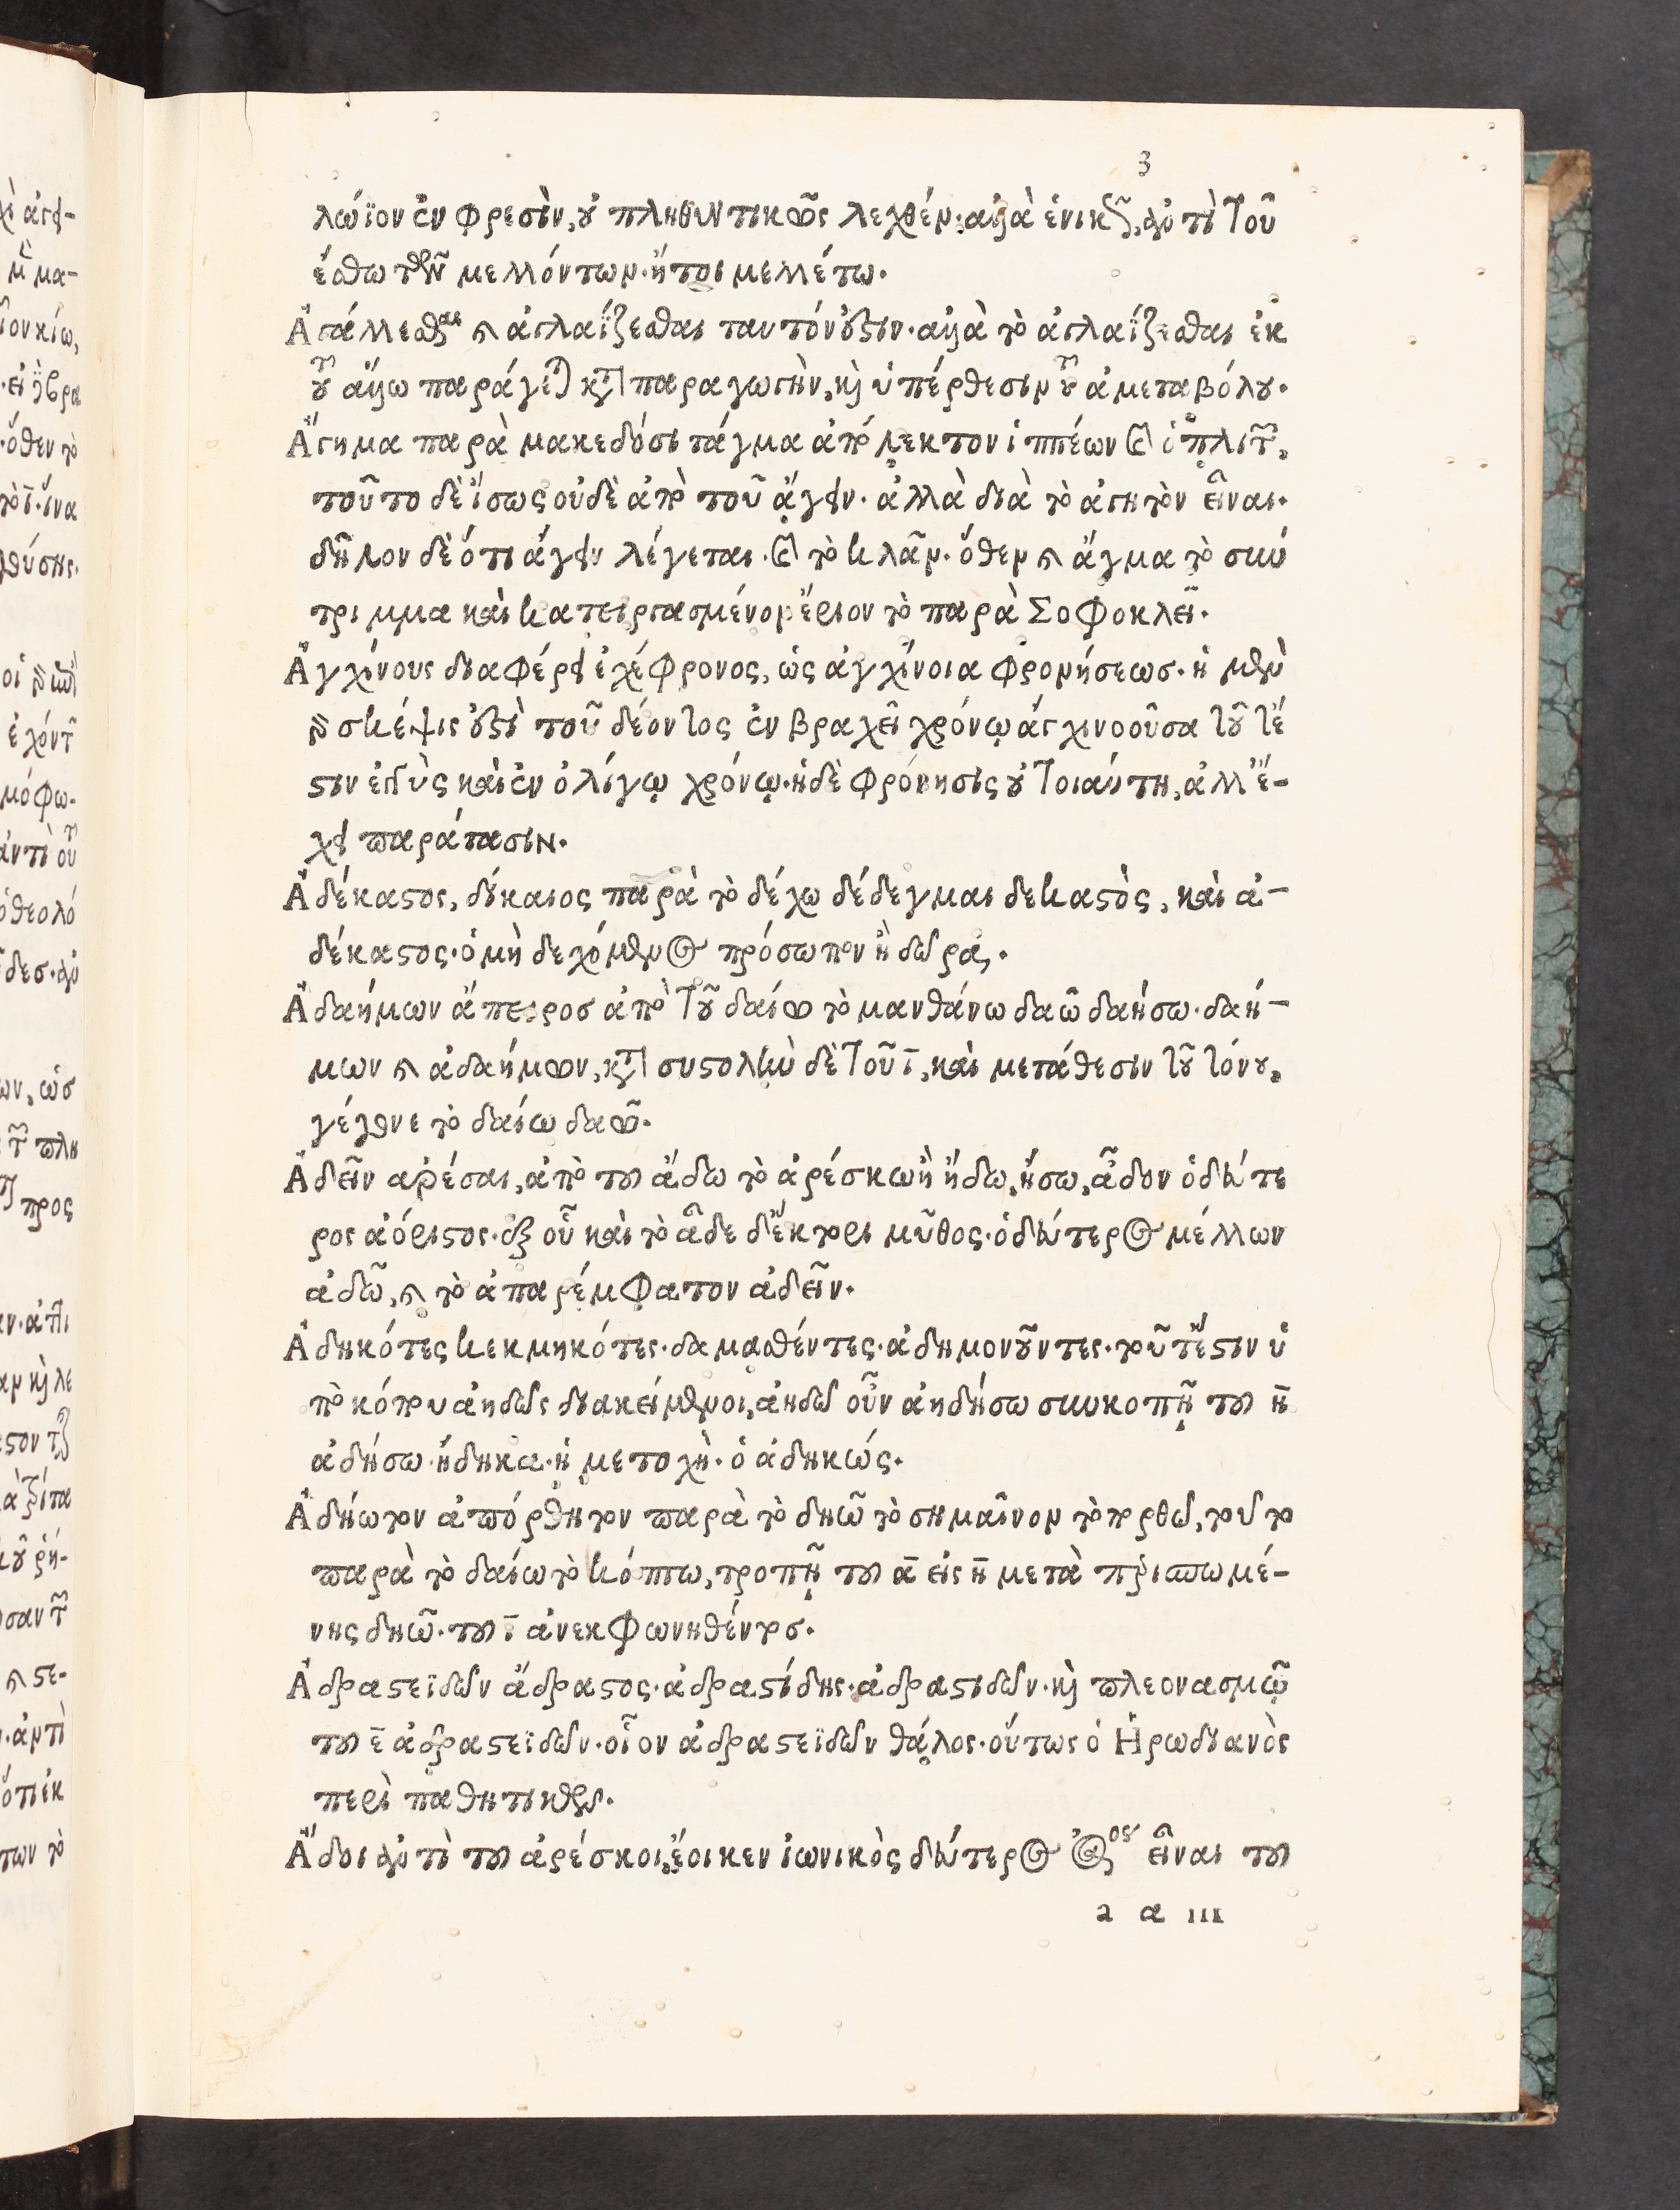 3
λώϊον ἐν φρεσὶν, οὐ πληθυντικῶς λεχθέν· ἀλλὰ ἑνικῶς, ἀντὶ τοῦ
ἔσθω τῶν μελλόντων. ἤτοι μελλέτω.
Ἀγάλλεσθαι καὶ ἀγλαΐζεσθαι ταυτόν ἐστιν· ἀλλὰ τὸ ἀγλαΐζεσθαι ἐκ
τοῦ ἄλλω παράγεται κατὰ παραγωγὴν, καὶ ὑπέρθεσιν τοῦ ἀμεταβόλου.
Ἄγημα παρὰ μακεδόσι τάγμα ἐπίλεκτον ἱππέων καὶ ὁπλιτῶν,
τοῦτο δὲ ἴσως οὐδὲ ἀπὸ τοῦ ἄγειν. ἀλλὰ διὰ τὸ ἀγητὸν εἶναι.
δῆλον δὲ ὅτι ἄγειν λέγεται. καὶ τὸ κλᾶν. ὅθεν καὶ ἄγμα τὸ σύν
τριμμα καὶ κατειργασμένον ἔριον τὸ παρὰ Σοφοκλεῖ.
Ἀγχίνους διαφέρει ἐχέφρονος, ὡς ἀγχίνοια φρονήσεως. ἡ μὲν
γὰρ σκέψις ἐστὶ τοῦ δέοντος ἐν βραχεῖ χρόνῳ ἀγχινοοῦσα τουτέ
στιν ἐγγὺς καὶ ἐν ὀλίγῳ χρόνῳ. ἡ δὲ φρόνησις οὐ τοιαύτη, ἀλλ' ἔ-
χει παράτασιν.
Ἀδέκαστος, δίκαιος παρὰ τὸ δέχω δέδεγμαι δεκαστὸς, καὶ ἀ-
δέκαστος. ὁ μὴ δεχόμενος πρόσωπον ἢ δῶρα.
Ἀδαήμων ἄπειρος ἀπὸ τοῦ δαίω τὸ μανθάνω δαῶ δαήσω. δαή-
μων καὶ ἀδαήμων, κατὰ συστολὴν δὲ τοῦ ῑ, καὶ μετάθεσιν τοῦ τόνου,
γέγονε τὸ δαίω δαῶ.
Ἀδεῖν ἀρέσαι, ἀπὸ του ἅδω τὸ ἀρέσκω ἢ ἥδω, ἥσω, ἆδον ὁ δεύτε
ρος ἀόριστος. ἐξ οὗ καὶ τὸ ἇδε δ' ἕκτορι μῦθος. ὁ δεύτερος μέλλων
ἁδῶ, καὶ τὸ ἀπαρέμφατον ἁδεῖν.
Ἀδηκότες κεκμηκότες. δαμασθέντες. ἀδημονοῦντες. τοῦτ' ἔστιν ὑ
πὸ κόπου ἀηδῶς διακείμενοι, ἀηδῶ οὖν ἀηδήσω συγκοπῇ του η̄
ἀδήσω. ἤδηκα. ἡ μετοχὴ. ὁ ἀδηκώς.
Ἀδήωτον ἀπόρθητον παρὰ τὸ δηῶ τὸ σημαῖνον τὸ πορθῶ, τοῦτο
παρὰ τὸ δαίω τὸ κόπτω, τροπῇ του ᾱ εἰς η̄ μετὰ περισπωμέ-
νης δηῶ. του ῑ ἀνεκφωνηθέντος.
Ἀδραστεϊδῶν ἄδραστος. ἀδραστίδης. ἀδραστιδῶν. καὶ πλεονασμῷ
του ε̄ ἀδραστεϊδῶν. οἷον ἀδραστεϊδῶν θάλος. οὕτως ὁ Ἡρωδιανὸς
περὶ παθητικῶν.
Ἄδοι ἀντὶ του ἀρέσκοι, ἔοικεν ἰωνικὸς δεύτερος ἀόριστος εἶναι του
a a iii